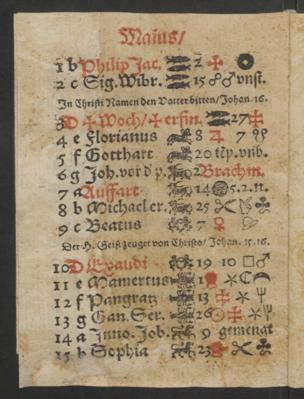 Maius/
1 b Philip Jac. 2
2 c Sig. Wibr. 15 ☍♂ vnst.
In Christi Namen den Vatter bitten/ Johan. 16.
3 D 4 Woch/ ✠ erfin. 27
4 e Florianus 8 ♃ 7
5 f Gotthart 20 tēp. vnb.
6 g Joh. vor d' p. 2 Brachm.
7 a Auffart 14 5. 2. n.
8 b Michael er. 25
9 c Beatus 7 ♀
Der H. Geist zeuget von Christo/ Johan. 15. 16.
10 D Exaudi 19 10 □♂
11 e Mamertus
12 f Pangratz 13
13 g Gan. Ser. 26 ☉
14 a Inno. Job. 9 gemengt
15 b Sophia 23